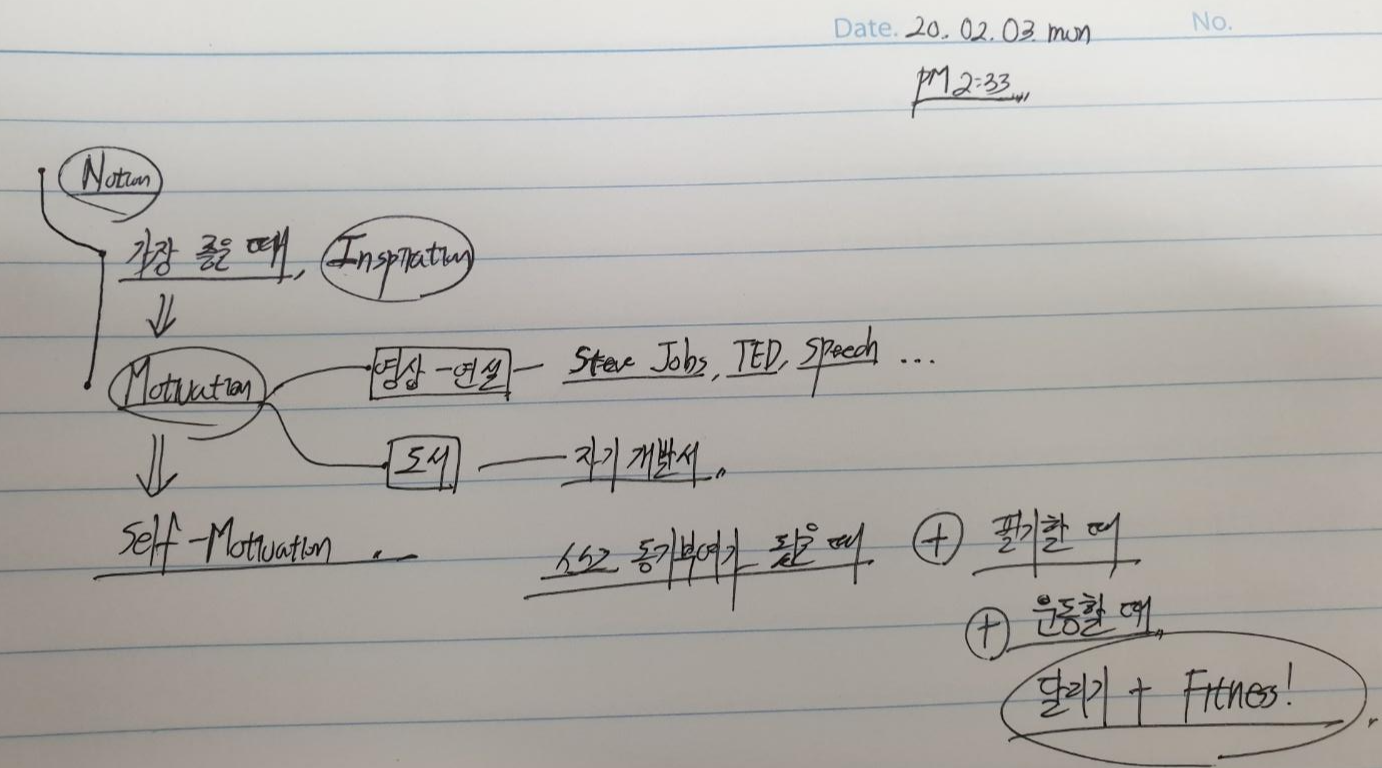 Date. 20. 02. 03. mon No.
PM 2:33
Notion
가장 좋은 때, Inspiration
⇓
Motivation 영상-연설 - Steve Jobs, TED, Speech ...
⇓
도서 - 자기 개발서
Self-Motivation 스스로 동기부여가 됐을 때 ⊕ 필기할 때
⊕ 운동할 때
달리기 + Fitness!